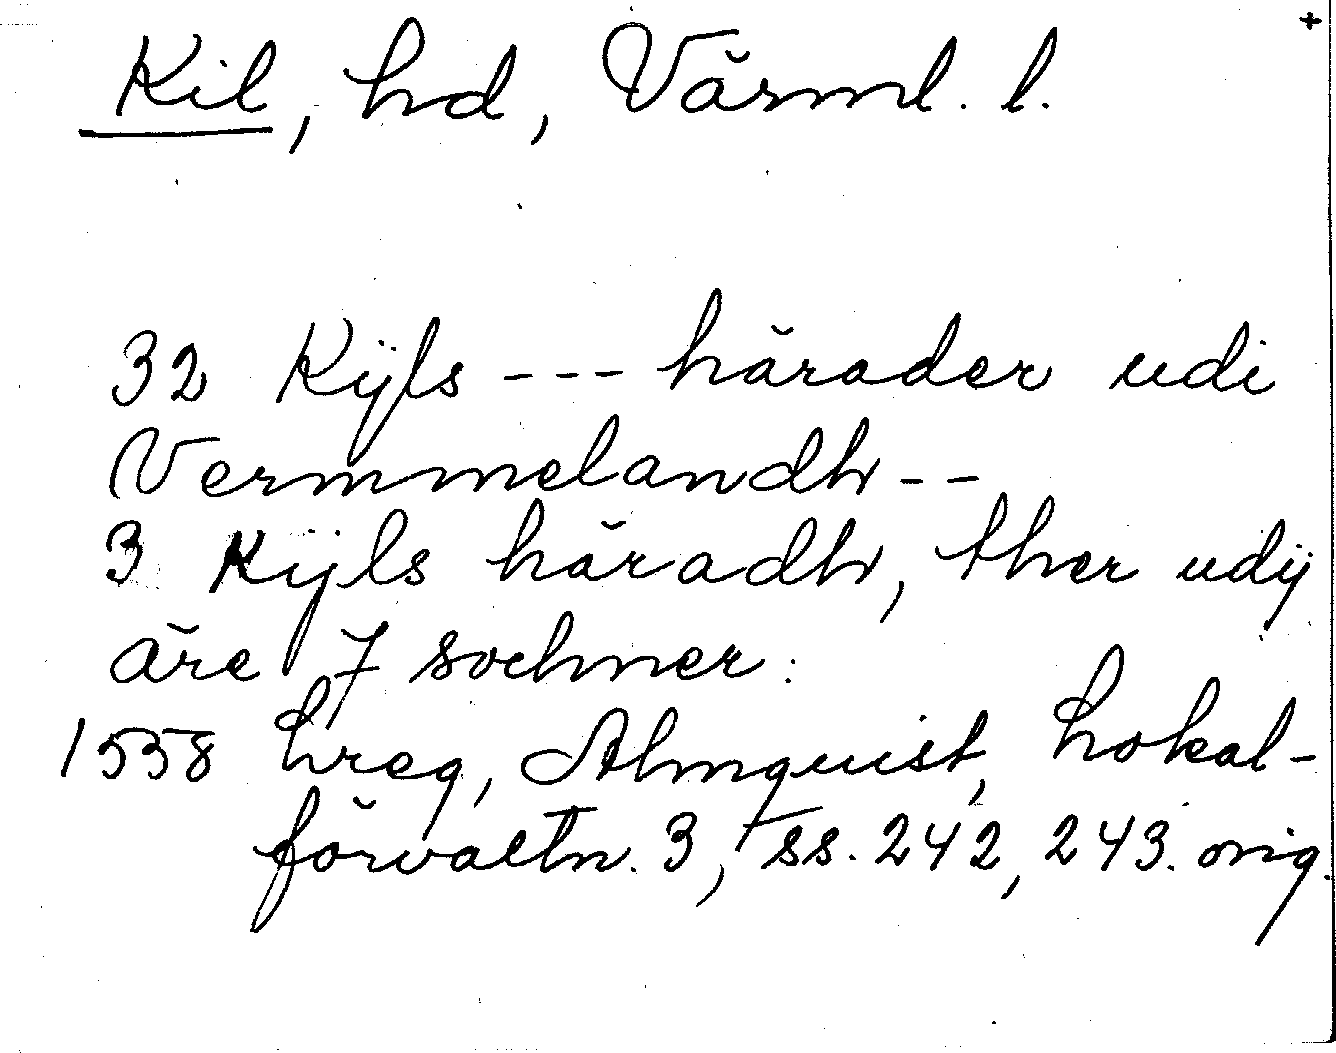 +
Kil, hd, Värml. l.
32 Kÿls --- härader udi
Vermmelandh --
3 Kÿls häradh, ther udÿ
äre 7 sochner:
1558 Lreg, Almquist, Lokal-
förvaltn. 3, ss. 242, 243. orig.